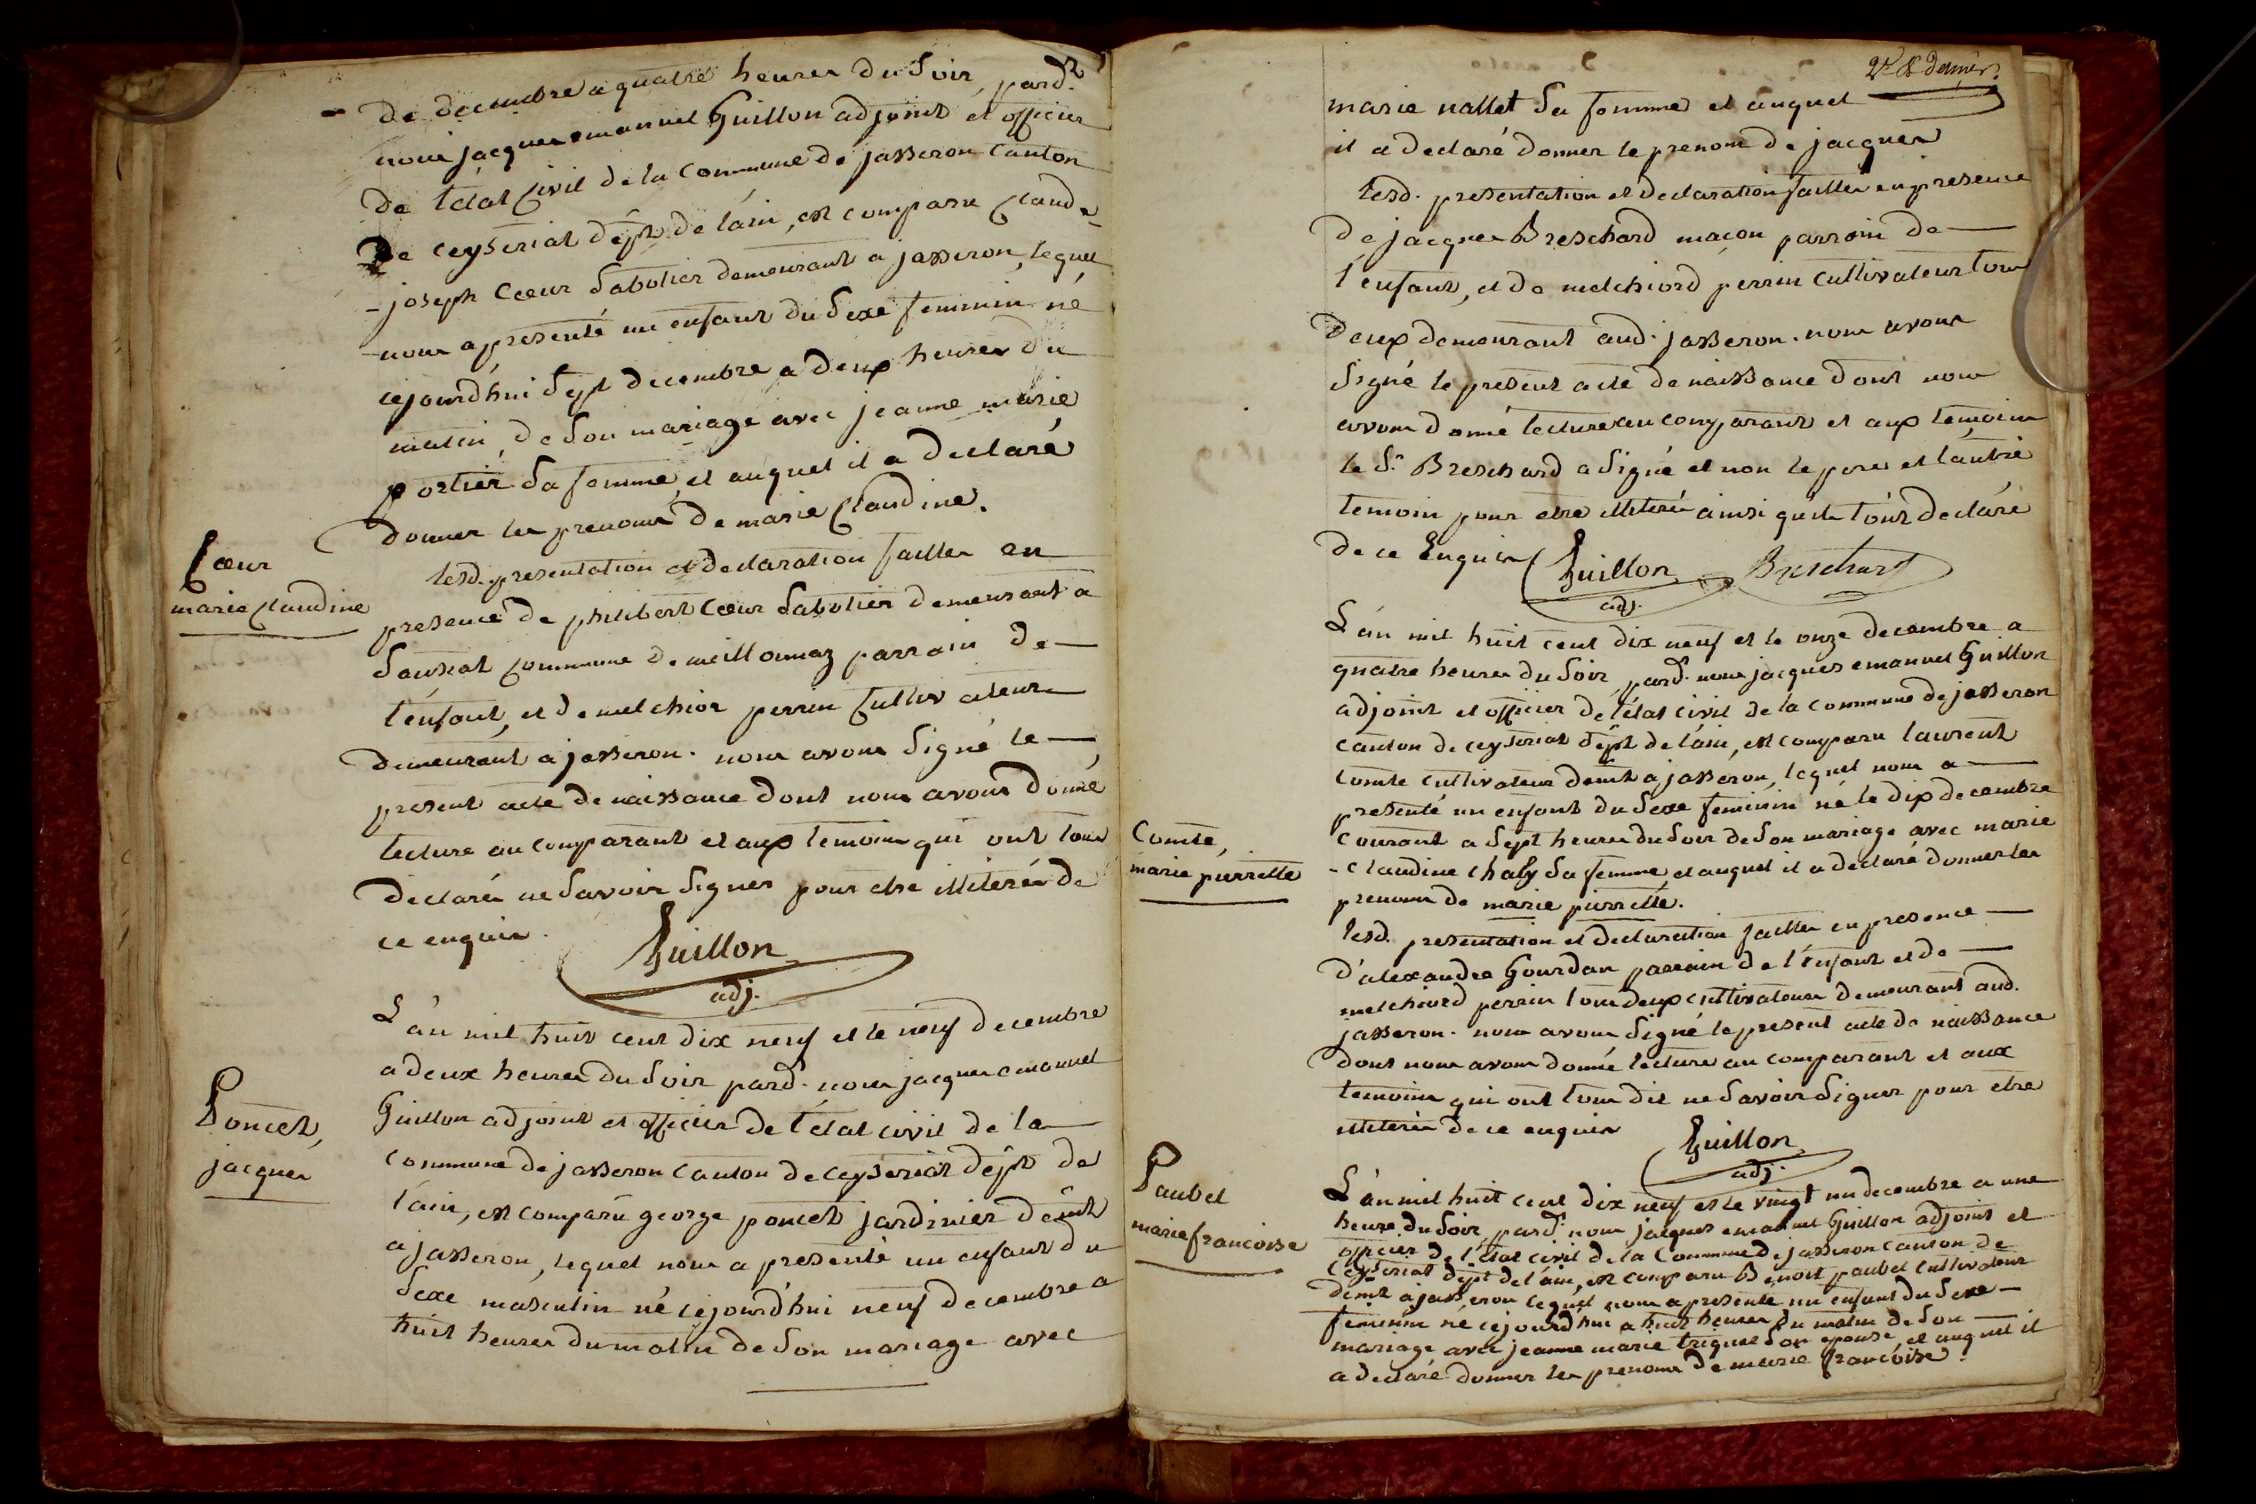 de decembre a quatre heures du Soir, pard.t
nous jacques emanuel Guillon adjoint et officier
de l'état Civil de la Commune de jasseron Canton
de ceyseriat dépt. de l'ain, est comparu Claude
- joseph Cœur Sabotier demeurant a jasseron, lequel
nous a presenté un enfant du Sexe feminin né
cejourd'hui Sept decembre a deux heures du
matin, de Son mariage avec jeanne marie
portier Sa femme, et auquel il a declaré
donner les prenoms de marie Claudine.
Cœur
marie Claudine
lesd. presentation et declaration faittes en
presence de philibert Cœur Sabotier demeurant a
Sanciat Commune de meillonnaz parrain de
l'enfant, et de melchior perrin Cultivateur
demeurant a jasseron. nous avons Signé le
present acte de naissance dont nous avons donné
lecture au comparant et aux temoins qui ont tous
declarés ne Savoir Signer pour etre illiterés de
ce enquis.
Guillon
adj.
L'an mil huit cent dix neuf et le neuf decembre
a deux heures du Soir pard. nous jacques emanuel
Poncet,
jacques
Guillon adjoint et officier de l'état civil de la
Commune de jasseron canton de ceyseriat dépt. de
l'ain, est comparu george poncet jardinier demt.
a jasseron, lequel nous a presenté un enfant du
Sexe masculin né cejourd'hui neuf decembre a
huit heures du matin de Son mariage avec
2e & dernier.
marie nallet Sa femme et auquel
il a declaré donner le prenom de jacques
lesd. presentation et declaration faittes en presence
de jacques Breschard maçon parrain de
l'enfant, et de melchiord perrin Cultivateur tous
deux demeurant aud. jasseron. nous avons
Signé le present acte de naissance dont nous
avons donné lecture au comparant et aux temoins
le S.r Breschard a Signé et non le pere et l'autre
temoin pour etre illiterés ainsi qu'ils l'ont declaré
de ce Enquis
Guillon
adj.
Breschard
L'an mil huit cent dix neuf et le onze decembre a
quatre heures du Soir, pard. nous jacques emanuel Guillon
adjoint et officier de l'état civil de la Commune de jasseron
canton de ceyseriat dépt. de l'ain, est comparu laurent
Comte cultivateur demt. a jasseron, lequel nous a
presenté un enfant du Sexe feminin né le dix decembre
Comte,
marie pierrette
Courant a Sept heures du Soir de Son mariage avec marie
- claudine chaby Sa femme, et auquel il a declaré donner les
prenoms de marie pierrette.
lesd. presentation et declaration faittes en presence
d'alexandre Gourdan parrain de l'enfant et de
melchiord perrin tous deux cultivateurs demeurant aud.
jasseron. nous avons Signé le present acte de naissance
dont nous avons donné lecture au comparant et aux
temoins qui ont tous dit ne Savoir Signer pour etre
illiterés de ce enquis
Guillon
adj.
Paubel
marie françoise
L'an mil huit cent dix neuf et le vingt un decembre a une
heure du Soir, pard. nous jacques emanuel Guillon adjoint et
officier de l'état civil de la Commune de jasseron canton de
Ceyseriat dépt. de l'ain, est comparu Benoit paubel Cultivateur
demt. a jasseron lequel nous a presenté un enfant du Sexe
feminin né cejourd'hui a huit heures du matin de Son
mariage avec jeanne marie triquet Son epouse, et auquel il
a declaré donner les prenoms de marie françoise.